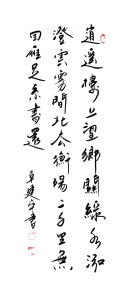 逍遙樓上望鄉關綠水泓
澄雲霧間北去衡陽二千里無
因雁足系書還